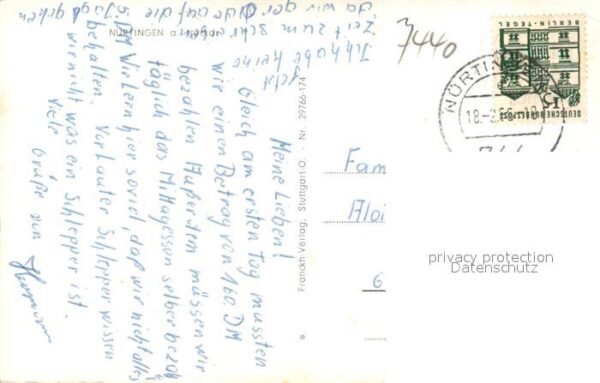 Meine Lieben!
Gleich am ersten Tag mussten
wir einen Betrag von 160.DM
bezahlen Außerdem müssen wir
täglich das Mittagessen selber bezahl
5.DM Wir Lern hier soviel, daß wir nicht alles
behalten. Vor lauter Schlepper wissen
wir nicht was ein Schlepper ist.
Viele Grüße von
Ich habe keine
Zeit zum schreiben
da wir gerade auf die Jagd gehen
7440
NÜRTINGEN a. Neckar
Franckh-Verlag, Stuttgart-O. Nr. 29766-174
Fam
Aloi
6
NÜRTIN
18.-7.66.-18
744
15
DEUTSCHE BUNDESPOST
BERLIN-TEGEL
privacy protection
Datenschutz